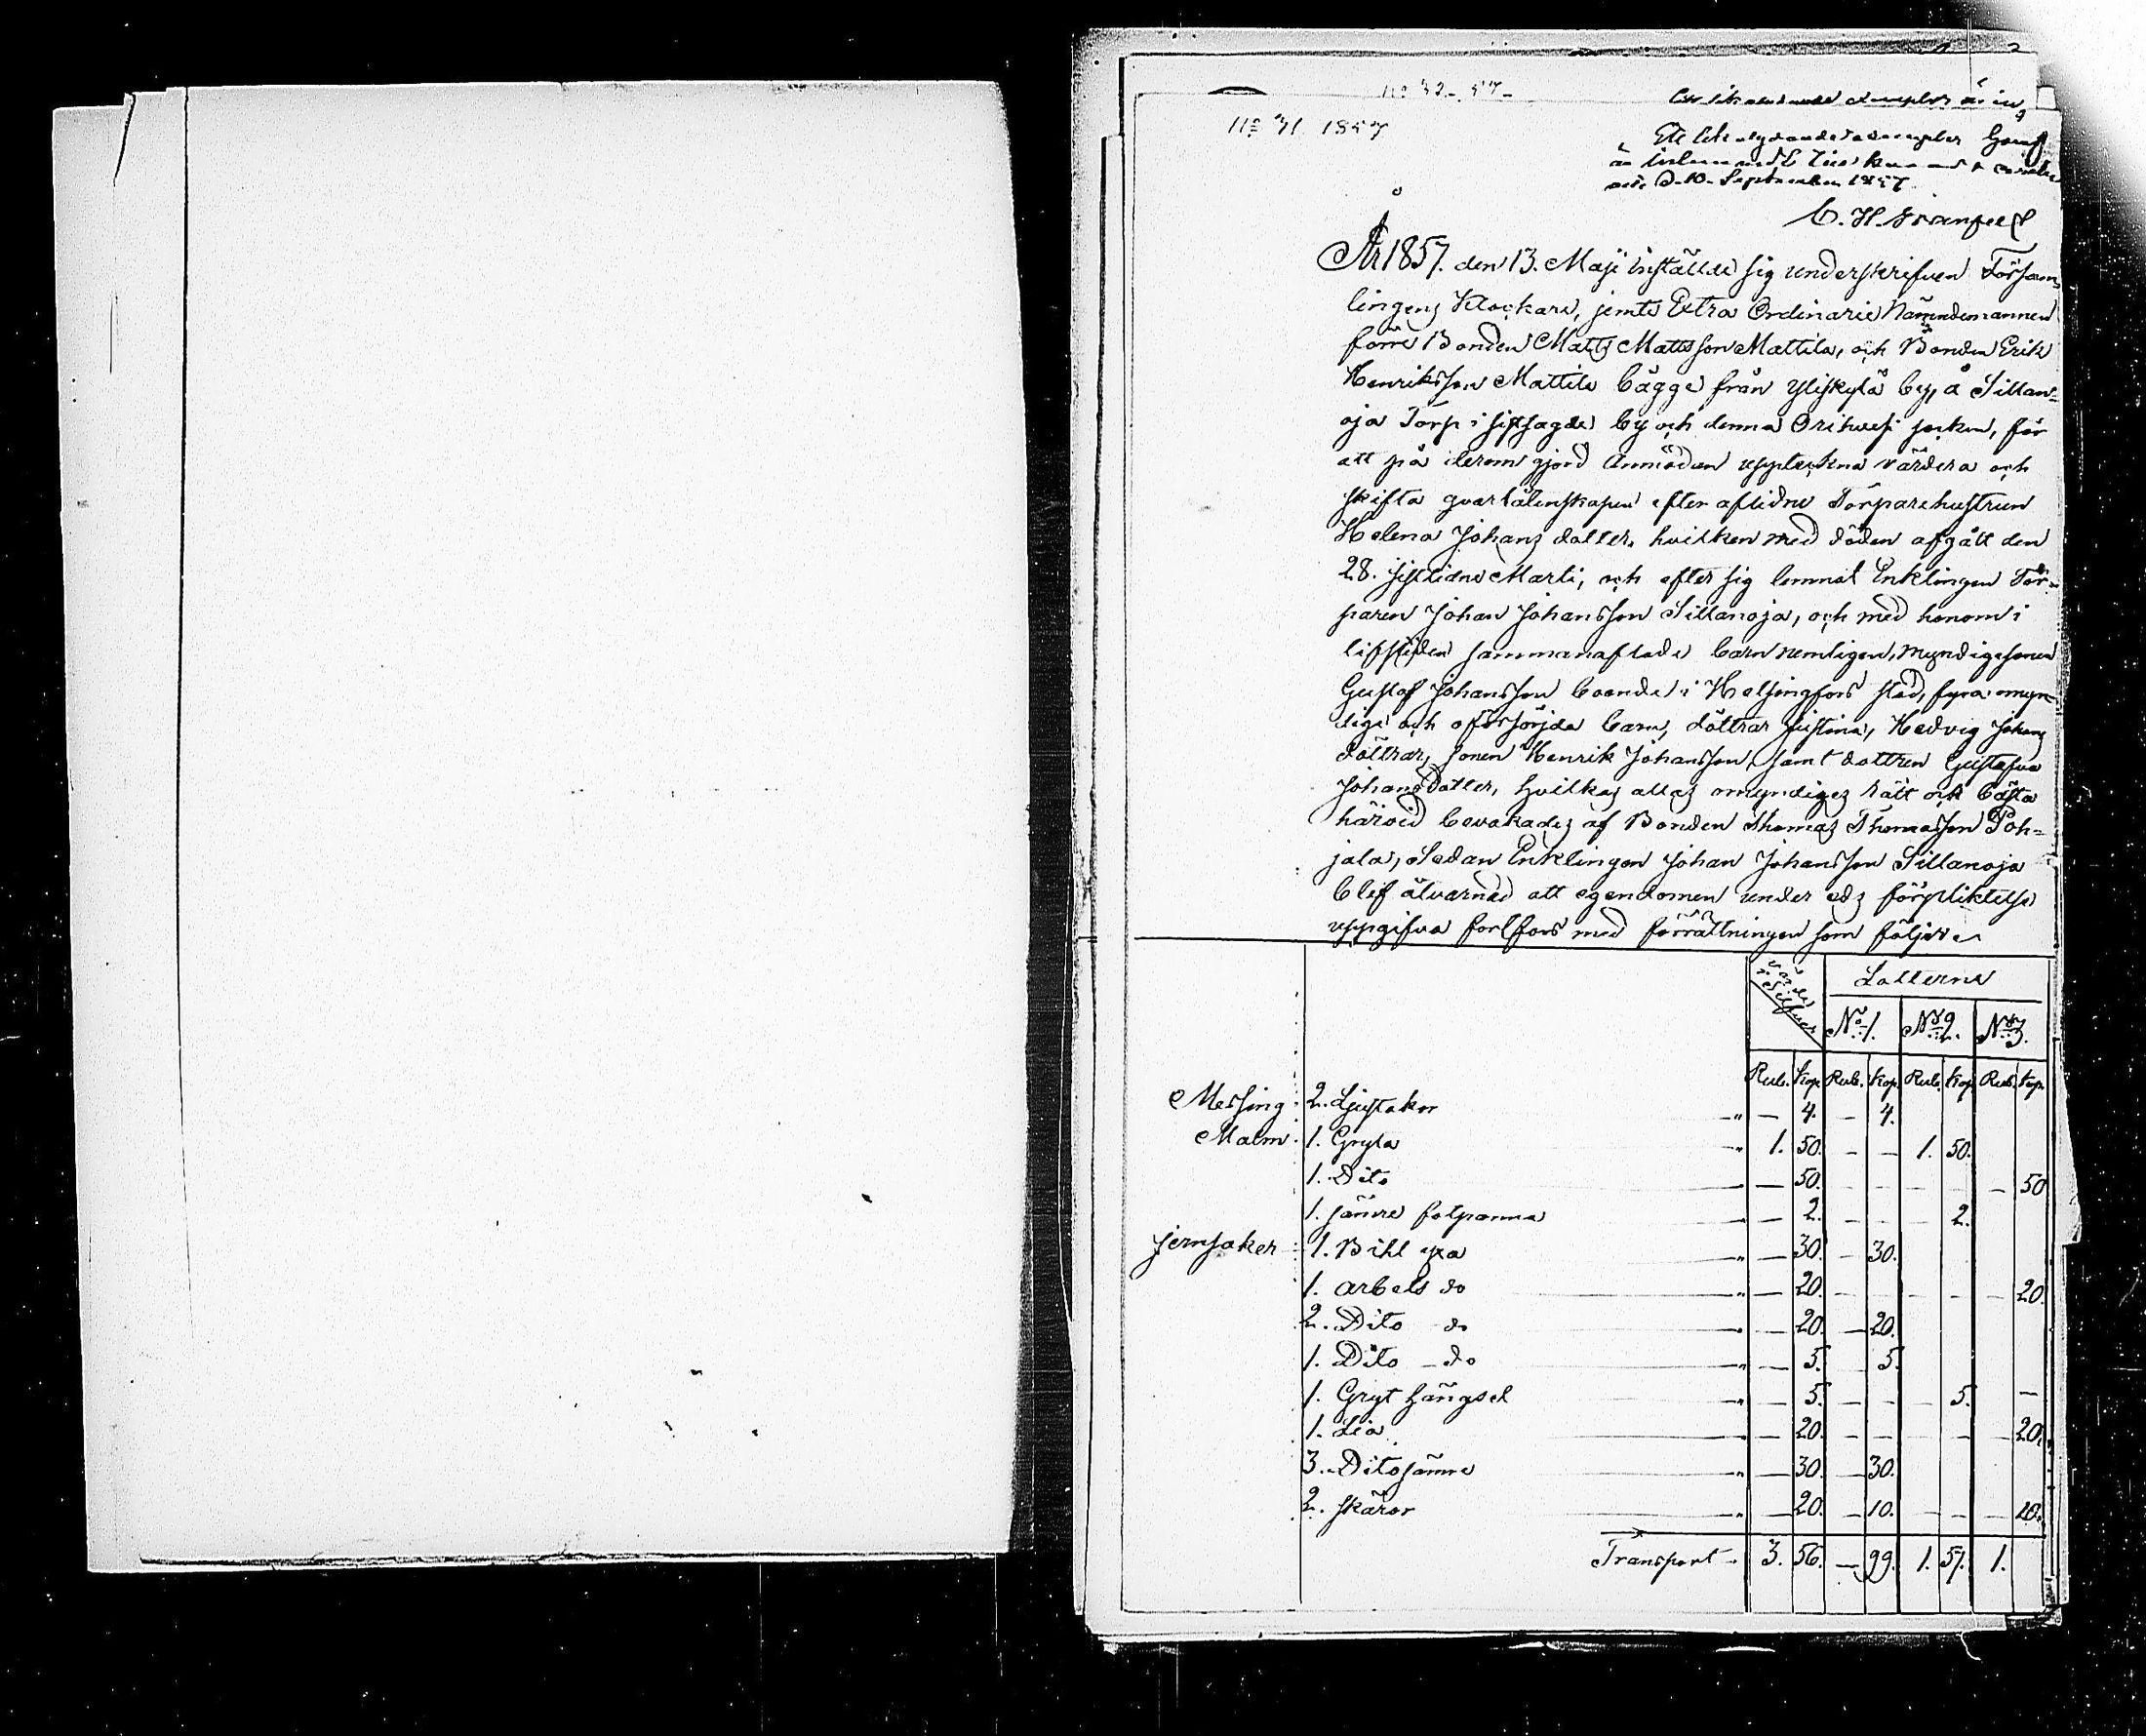 No 32. 57
No 31. 1857
Ett lika lydande exemplar
är
D. 10. September 1857.
C. H.
År 1857. den 13. Maji instälde sig underskrifven Församlingens
lingens Klockare, jemte Extra Ordinarie Nämndemannen
förre Bonden Matts Mattsson Mattila, och Bonden Erik
Henriksson Mattila bägge från Yliskylä by, å Sillan-
oja Torp i sistsagde by och denna Orihvesi socken, för
att på derom gjord anmodan uppteckna värdera och
skifta qvarlåtenskapen efter aflidne Torparehustrun
Helena Johans dotter, hvilken med döden afgått den
28. sistlidne Marti, och efter sig lemnat Enklingen Tor-
paren Johan Johansson Sillanoja, och med honom i
lifstiden sammanaflade barn nemligen, myndige sonen
Gustaf Johansson boende i Helsingfors stad, fyra omyn-
dige och oförsörjda barn, döttrar Justina, Hedvig Johans
döttrar, sonen Henrik Johansson, samt dottren Gustafva
Johansdotter, hvilkas allas omyndiges rätt och bästa
härvid bevakades af Bonden Thomas Thomasson Poh-
jala, Sedan Enklingen Johan Johansson Sillanoja
blef alvarnad att egendomen under eds förpliktelse
uppgifva fortfors med förrättningen som följer
Silfver Lotterne
No 1. No 2. No 3.
Rub. Kop. Rub. Kop. Rub. Kop. Rub. Kop.
Messing 2. Ljustakor " — 4. — 4.
Malm 1. Gryta " 1. 50. — — 1. 50.
1. Dito — 50. — — — — — 50
1. sämre fotpanna " — 2. — — — 2.
Jernsaker 1. Bihl yxa " — 30. — 30.
1. arbets do " — 20. — — — — — 20.
2. Dito do " — 20. — 20.
1. Dito — do " — 5. — 5.
1. Gryt hängsel " — 5. — — — 5. —
1. Lia " — 20. — — — — — 20.
3. Dito sämre " — 30. — 30.
2. skäror " — 20. — 10. — — — 10.
Transport 3. 56. — 99. 1. 57. 1.